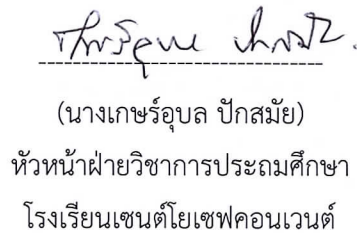 (นางเกษร์อุบล ปักสมัย)
หัวหน้าฝ่ายวิชาการประถมศึกษา
โรงเรียนเซนต์โยเซฟคอนเวนต์